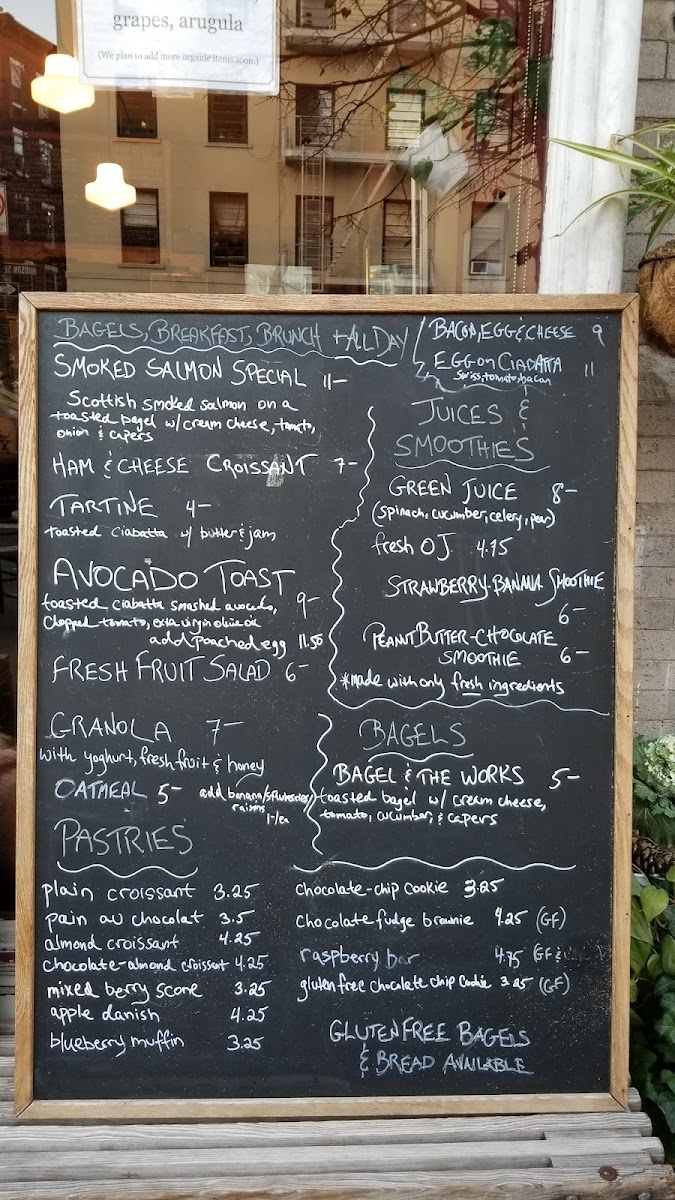 grapes, arugula
(We plan to add more organic items soon.)
HUDSON ST
BAGELS, BREAKFAST, BRUNCH + ALL DAY
SMOKED SALMON SPECIAL 11-
Scottish smoked salmon on a
toasted bagel w/ cream cheese, tomato,
onion & capers
HAM & CHEESE CROISSANT 7-
TARTINE 4-
toasted ciabatta w/ butter & jam
AVOCADO TOAST
toasted ciabatta smashed avocado, 9-
chopped tomato, extra virgin olive oil
add poached egg 11.50
FRESH FRUIT SALAD 6-
GRANOLA 7-
with yoghurt, fresh fruit & honey
OATMEAL 5- add banana/
raisins
1-/ea
BACON, EGG & CHEESE 9
EGG ON CIABATTA 11
swiss, tomato, bacon
JUICES &
SMOOTHIES
GREEN JUICE 8-
(spinach, cucumber, celery, pear)
fresh OJ 4.75
STRAWBERRY-BANANA SMOOTHIE
6-
PEANUT BUTTER-CHOCOLATE
SMOOTHIE 6-
*made with only fresh ingredients
BAGELS
BAGEL & THE WORKS 5-
toasted bagel w/ cream cheese,
tomato, cucumber, & capers
PASTRIES
plain croissant 3.25
pain au chocolat 3.5
almond croissant 4.25
chocolate-almond croissant 4.25
mixed berry scone 3.25
apple danish 4.25
blueberry muffin 3.25
chocolate-chip cookie 3.25
chocolate fudge brownie 4.25 (GF)
raspberry bar 4.75 (GF &
gluten free chocolate chip cookie 3.25 (GF)
GLUTEN FREE BAGELS
& BREAD AVAILABLE